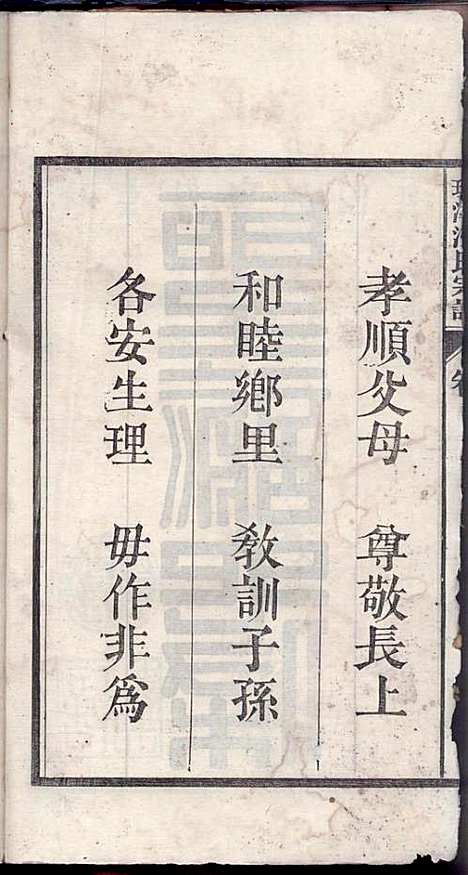 孝順父母　尊敬長上
和睦鄉里　教訓子孫
各安生理　毋作非為